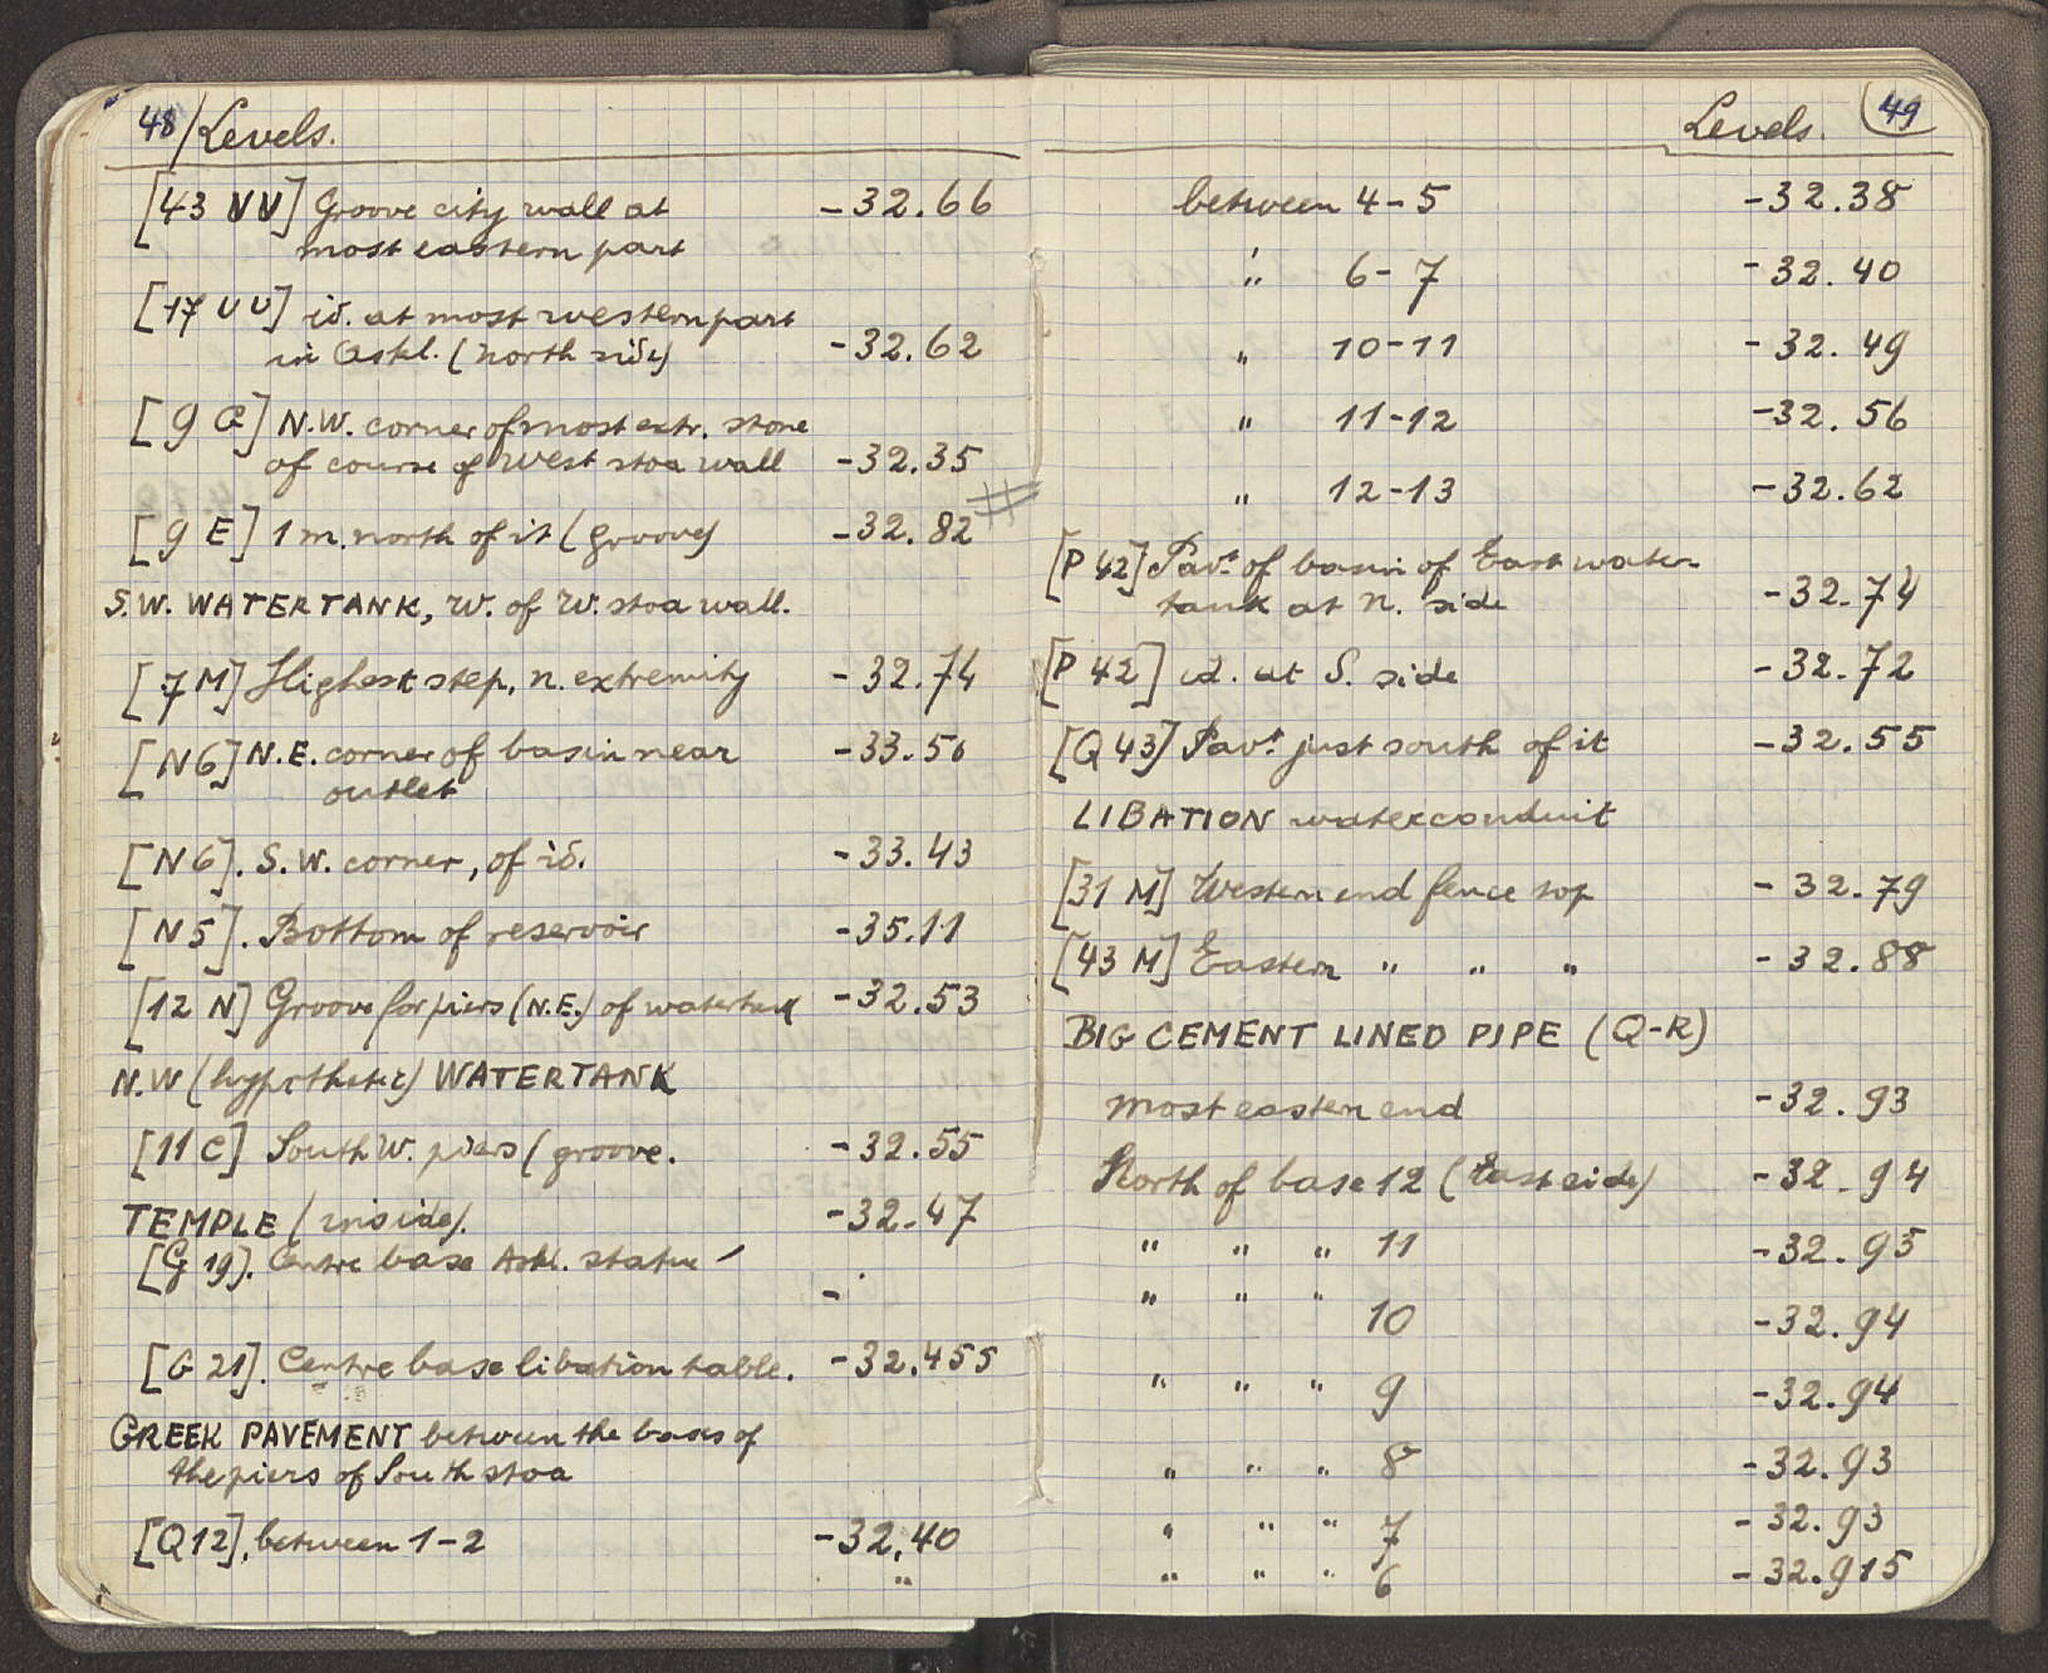 48 / Levels.
[43 VV] Groove city wall at -32.66
most eastern part
[17 UU] id. at most western part
in Askl. (north side) -32.62
[9 C] N.W. corner of most extr. stone
of course of West stoa wall -32.35
[9 E] 1 m. north of it (groove) -32.82 #
S.W. WATERTANK, W. of W. stoa wall.
[7 M] Highest step, n. extremity -32.74
[N6] N.E. corner of basin near -33.50
outlet
[N 6]. S.W. corner, of id. -33.43
[N 5]. Bottom of reservoir -35.11
[12 N] Groove for piers (N.E.) of watertank -32.53
N.W (hypothetic) WATERTANK
[11 C] South W. piers (groove. -32.55
TEMPLE (inside). -32.47
[G 19]. Centre base Askl. statue -
[G 21]. Centre base libation table. -32.455
GREEK PAVEMENT between the bases of
the piers of South stoa
[Q12], between 1-2 -32.40
"
Levels. 49
between 4-5 -32.38
" 6-7 -32.40
" 10-11 -32.49
" 11-12 -32.56
" 12-13 -32.62
[P 42] Pavt. of basin of East water-
tank at N. side -32.74
[P 42] id. at S. side -32.72
[Q 43] Pavt. just south of it -32.55
LIBATION waterconduit
[31 M] Western end fence top -32.79
[43 M] Eastern " " " -32.88
BIG CEMENT LINED PIPE (Q-R)
most eastern end -32.93
North of base 12 (East side) -32.94
" " " 11 -32.95
" " " 10 -32.94
" " " 9 -32.94
" " " 8 -32.93
" " " 7 -32.93
" " " 6 -32.915